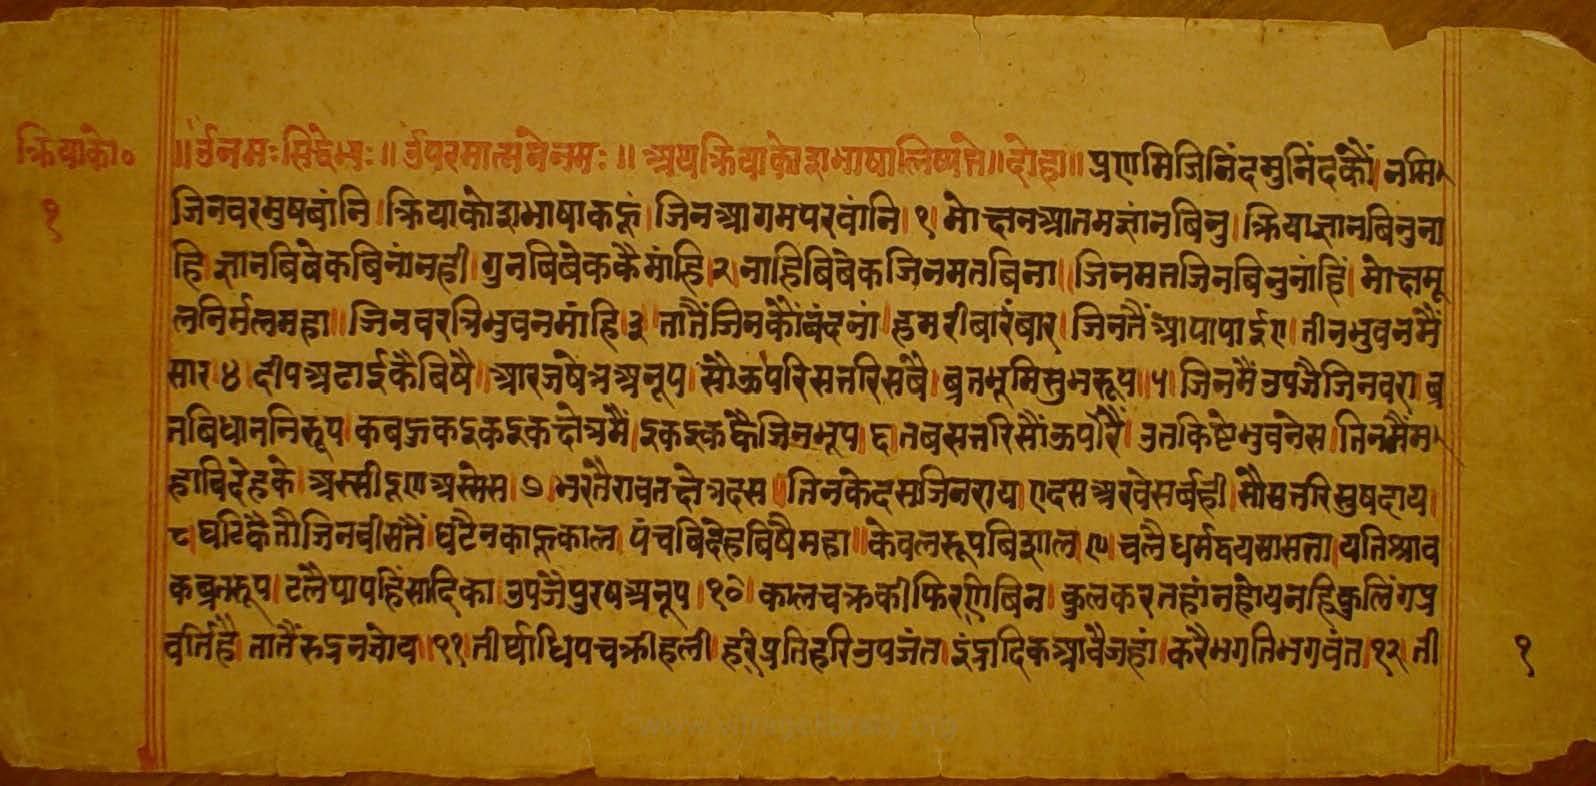 क्रियाको०
१
॥ र्उनमःसिद्धेभ्यः॥ र्उपरमात्मनेनमः॥ अथक्रियाकोशभाषालिष्यत्ते॥ दोहा॥ प्रणमिजिनिंदमुनिंदकौं। नमि
जिनवरमुषबांनि। क्रियाकोशभाषाकहूं। जिनआगमपरवांनि। १। मोक्षनआतमज्ञांनबिनु। क्रियाज्ञानबिनुना
हि ज्ञानबिबेकबिनांनही। गुनबिबेककैमांहि। २ नाहिबिबेकजिनमतबिना। जिनमतजिनबिनुनांहिं। मोक्षमू
लनिर्मलमहा। जिनवरत्रिभुवनमांहि। ३ तातैंजिनकौंबंदनां। हमरीबारंबार। जिनतैं आपापाईए। तीनभुवनमैं
सार। ४। दीपअढाईकैबिषै। आरजषेत्रअनूप। सौऊपरिसत्तरिसबै। ब्रतभूमिसुभरूप। ५। जिनमैंउपजैजिनवरा। ब्र
तबिधाननिरूप। कबऊकइकइकक्षेत्रमैं। इकइककैजिनभूप। ६। तबसत्तरिसौंऊपरैं। उतकिष्टेभुवनेस। तिनमैंम
हाबिदेहके। अस्सीदूणअसेस। ७। भरतैरावतक्षेत्रदस। तिनकेदसजिनराय। एदसअरवेसर्बही। सौसत्तरिसुषदाय।
८। घटिकैतौजिनबीसतैं। घटैनकाहूकाल। पंचबिदेहबिषैमहा। केवलरूपबिशाल। ९। चलैधर्मद्वयसासता। यतिश्राव
कब्रतरूप। टलैपापहिंसादिका। उपजैपुरषअनूप। १०। कालचक्रकीफिरणिबिन। कुलकरतहांनहोय। नहिकुलिंगप्र
वर्तिहै। तातैंरुद्रनजोय। ११। तीर्थाधिपचक्रीहली। हरिप्रतिहरिउपजंत। इंद्रादिकआवैजहां। करैभगतिभगवंत। १२। ती
१